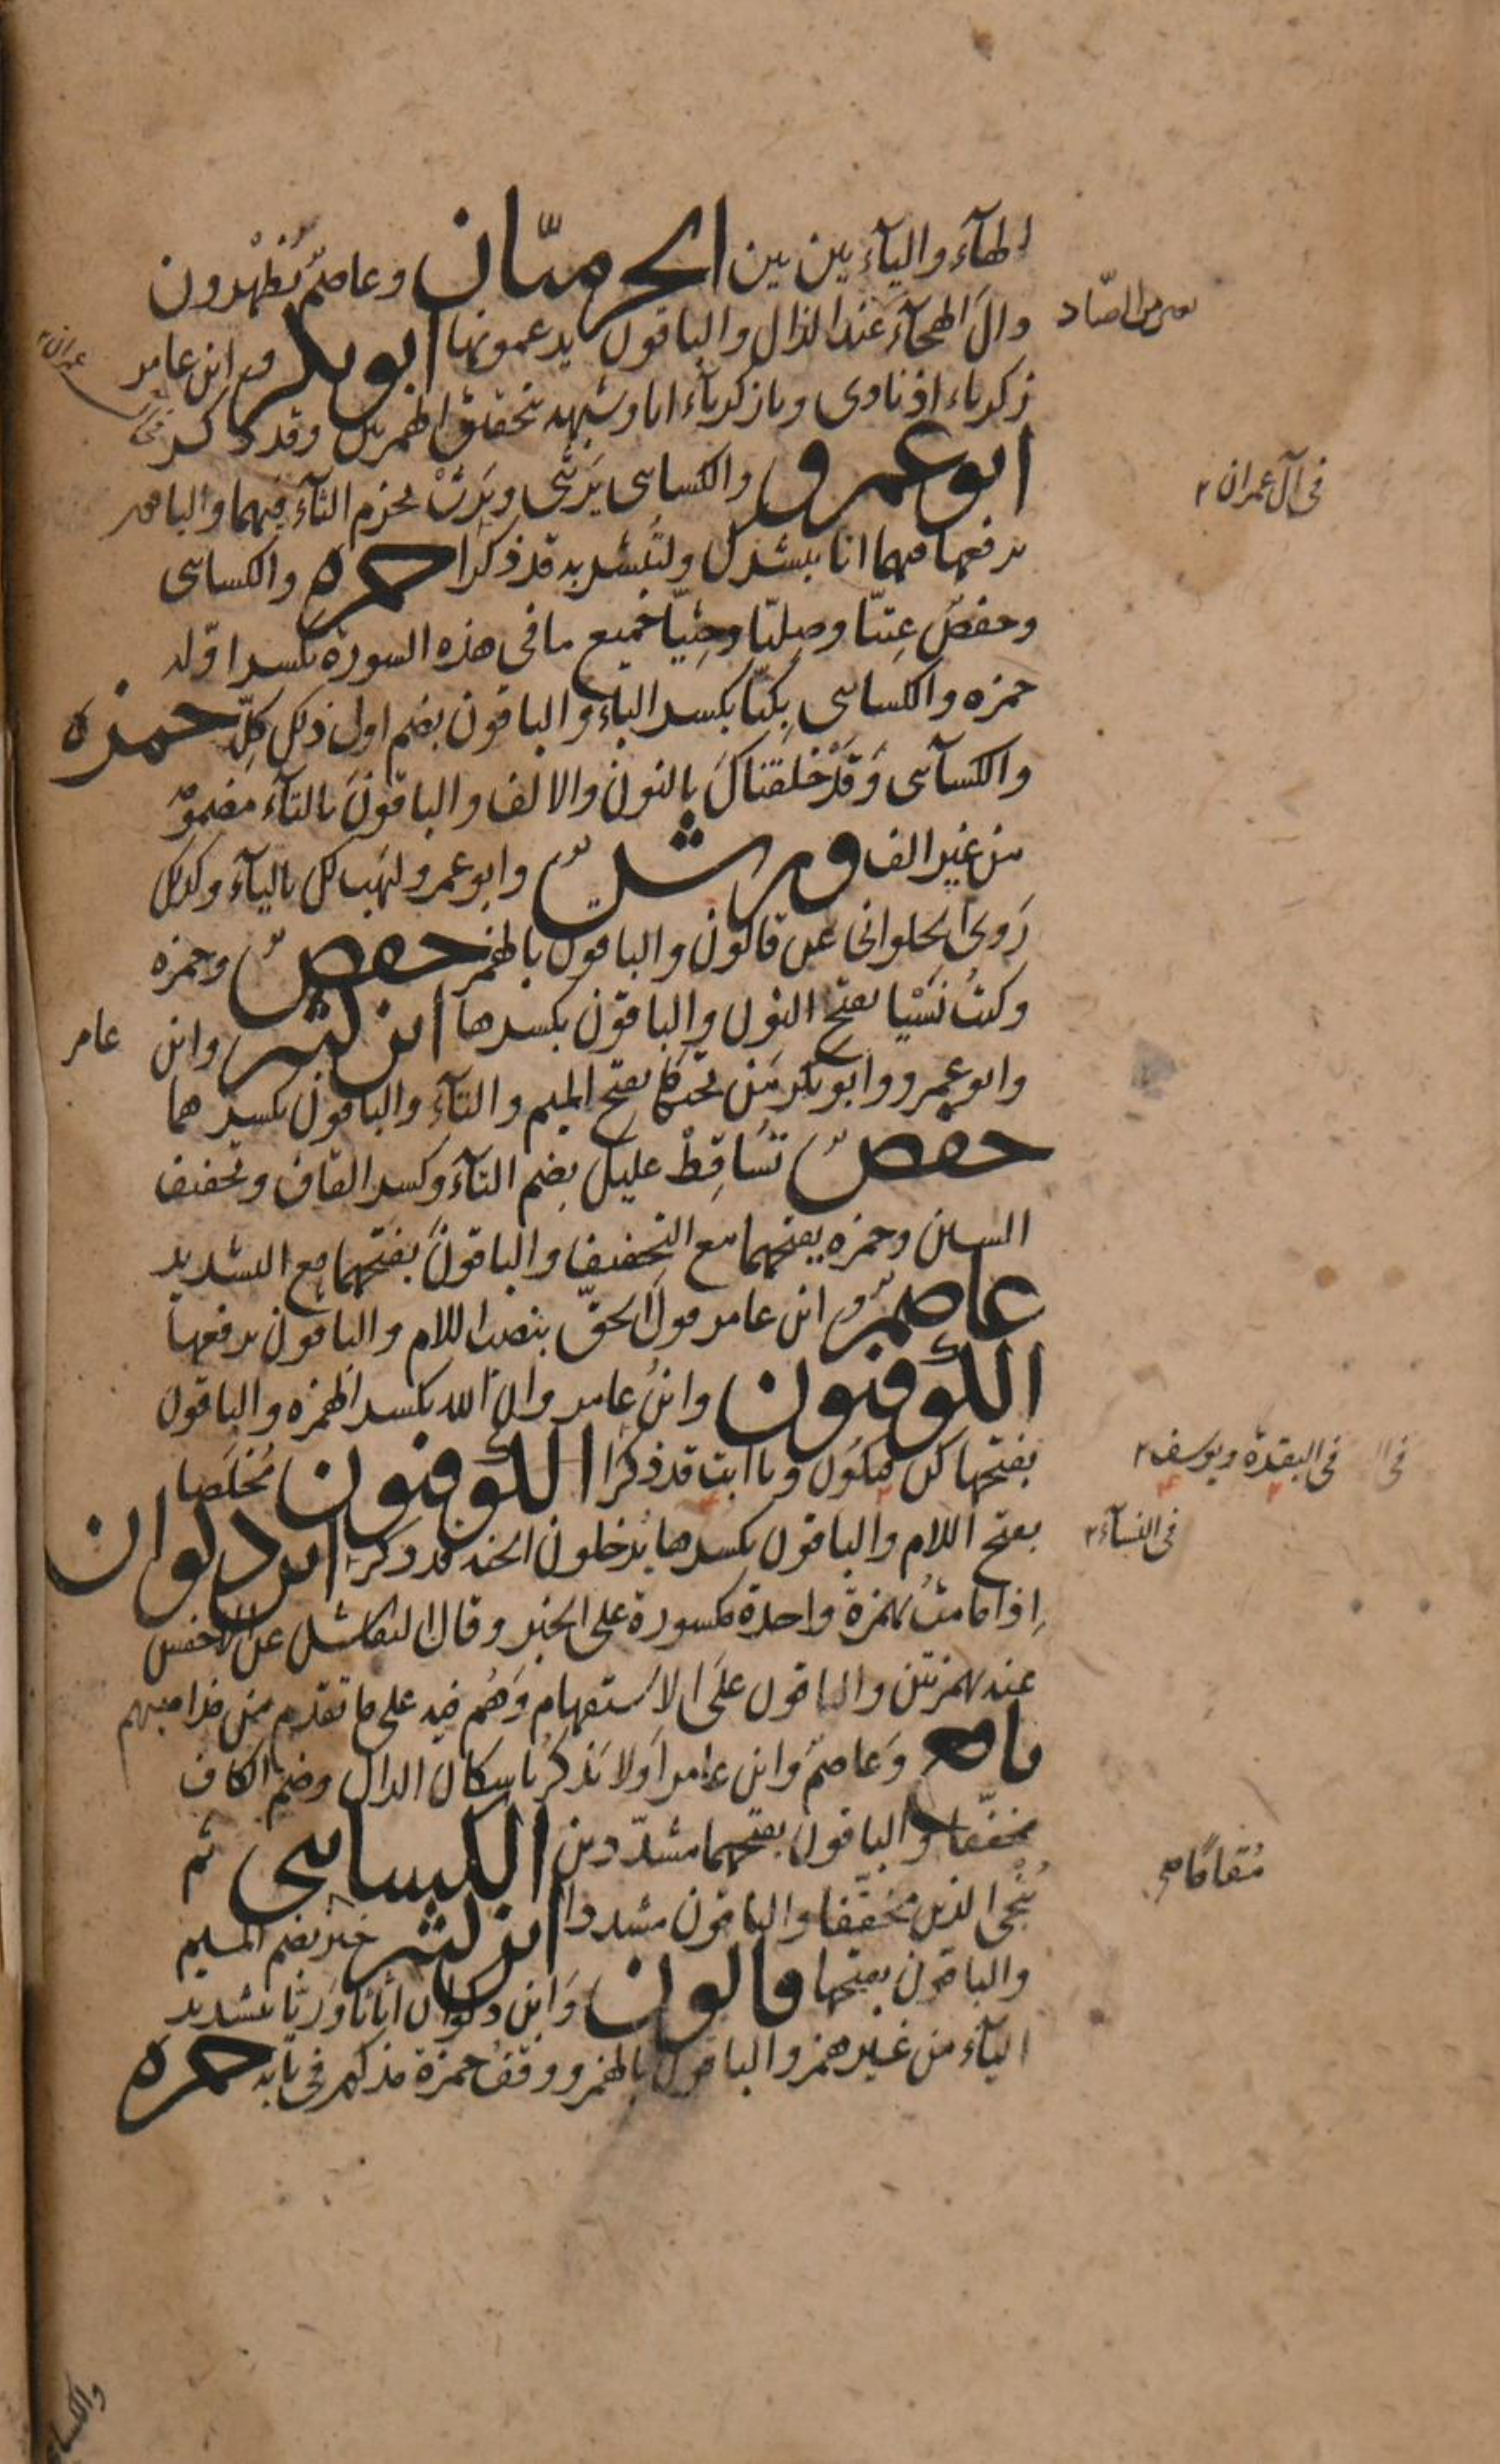 الهآء واليآء بين بين الحرميّان وعاصمٌ يُظهرون
دال الهجآء عند الذال والباقون يدغمونها ابو بكر وابن عامر
زكرياء اذ نادى ويا زكرياء انا وشبهه بتحقيق الهمزتين وقد ذكر
ابو عمرو والكسائى يَرثنى ويَرثْ بجزم الثآء فيهما والباقون
برفعها فيهما انا نبشرك ولتبشر به قد ذكرا حمزه والكسائى
وحفصٌ عِتيّا وصِليّا وجِثيّا جميع ما فى هذه السورة بكسر اوّله
حمزه والكسائى بِكيّا بكسر الباء والباقون بضم اول ذلك كلّه حمزه
والكسآئى وَقَدْ خلقناك بالنون والالف والباقون بالتآء مضمومة
من غير الف ورشٌ وابو عمرو ليهب لك باليآء وكذلك
رَوى الحلوانى عن قالون والباقون بالهمز حفصٌ وحمزه
وكنتُ نَسْيا بفتح النون والباقون بكسرها ابن كثير وابن عامر
وابو عمرو وابو بكر مَن تحتَها بفتح الميم والتآء والباقون بكسرهما
حفصٌ تُسَاقِطْ عليك بضم التآء وكسر القاف وتخفيف
السين وحمزه بفتحهما مع التخفيف والباقون بفتحهما مع التشديد
عاصمٌ وابن عامر قولَ الحقّ بنصب اللام والباقون برفعها
الكوفيون وابنُ عامر وان الله بكسر الهمزه والباقون
بفتحها كن فيكون ويا ابت قد ذكرا الكوفيون مُخلَصا
بفتح اللام والباقون بكسرها يُدخلون الجنه قد ذكر ابن ذكوان
اِذا ما متُ بهمزة واحدة مكسورة على الخبر وقال النقاش عن الاخفش
عنه بهمزتين والباقون على الاستفهام وَهُم فيه على ما تقدم من مذاهبهم
نافع وَعاصمٌ وابن عامر اَولا يَذكرُ باسكان الذال وضم الكاف
مخفّفا والباقون بفتحهما مشدّدين الكسائى ثم
نُنْجى الذين مخففا والباقون مشددا ابن كثير خير بضم الميم
والباقون بفتحها قالون وَابن ذكوان اثاثا ورئيا بتشديد
اليآء من غير همز والباقون بالهمز ووقفُ حمزة مذكور فى بابه حمزه
من الصّاد
عمران
فى آل عمران
فى البقرة ويوسف
فى النسآء
مُقامًا
والكسائى